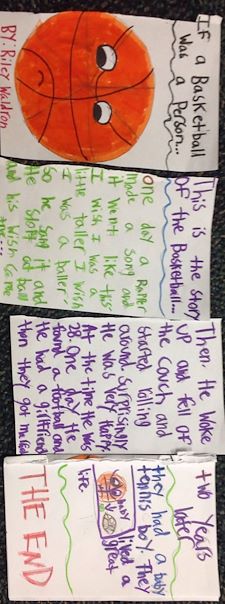 If a Basketball
Was a Person...
BY: Riler Waldron
This is the story
of the Basketball...
One day a Raper
made a song and
it went like this
I wish I was a
little taller I wish
I was a baller.
So he sang it and
the shot at ball
and his wish came
true...
Then, He woke
up and fell of
the couch and
started rolling
around. Surprisingly
He was very happy.
At the time He was
28. One day he
found a football and
He had a girlfriend
then they got married
two Years
later
they had a baby
tennis boy. They
liked a
great
life.
THE END